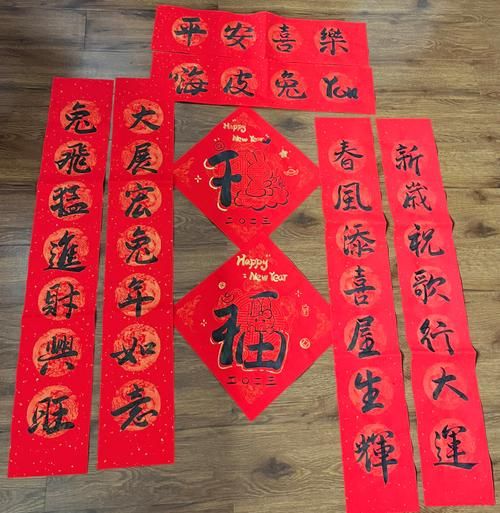 平安喜樂
嗨皮兔You
新歲祝歌行大運
春風添喜屋生輝
"Happy
New Year"
二〇二三
"Happy"
New Year
福
二〇二三
大展宏兔年如意
兔飛猛進財興旺